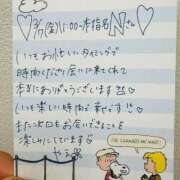 3/7(金)15:00〜本指名Nさん
いつもお忙しいタイミングで
時間くださり会いに来てくれて
本当にありがとうございます
いつも楽しい時間で幸せです!!
また次回もお会いできることを
楽しみにしています